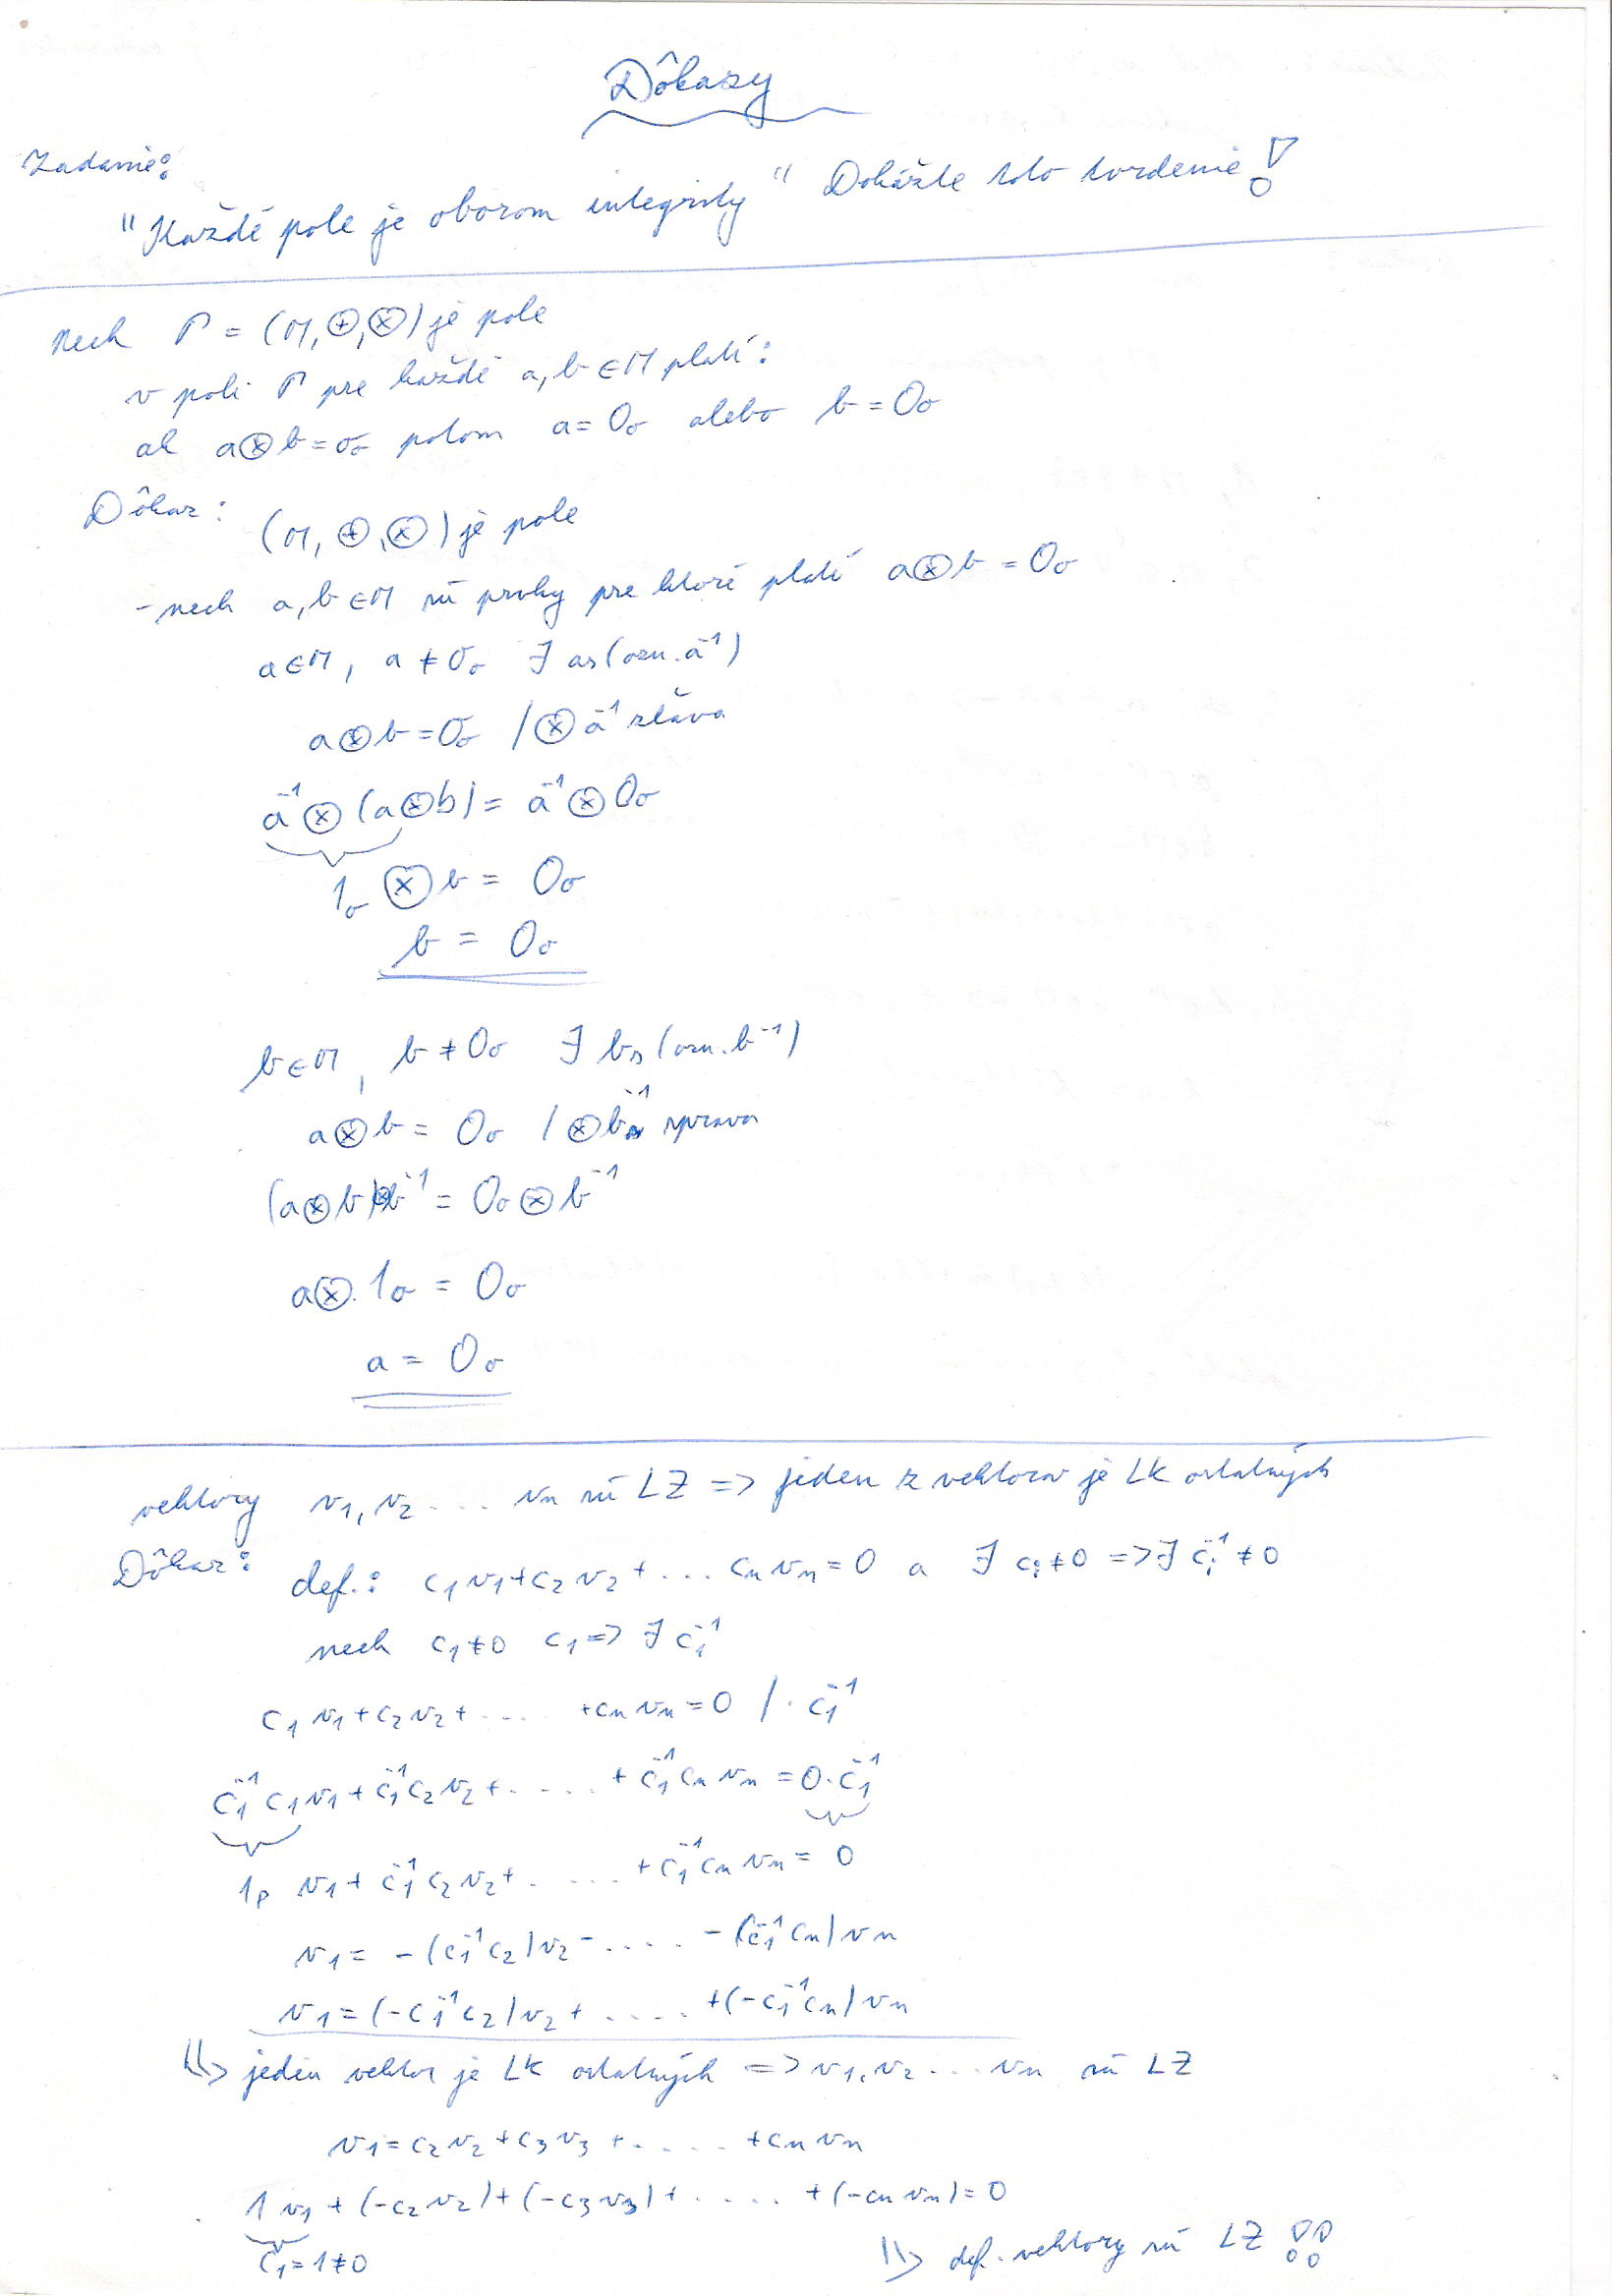 Dôkazy
Zadanie:
"Každé pole je oborom integrity" Dokážte toto tvrdenie!
nech P = (M, ⊕, ⊗) je pole
v poli P pre každé a, b ∈ M platí:
ak a ⊗ b = 0₀ potom a = 0₀ alebo b = 0₀
Dôkaz:
(M, ⊕, ⊗) je pole
- nech a, b ∈ M sú prvky pre ktoré platí a ⊗ b = 0₀
a ∈ M, a ≠ 0₀ ∃ as (ozn. a⁻¹)
a ⊗ b = 0₀ / ⊗ a⁻¹ zľava
a⁻¹ ⊗ (a ⊗ b) = a⁻¹ ⊗ 0₀
1₀ ⊗ b = 0₀
b = 0₀
b ∈ M, b ≠ 0₀ ∃ bs (ozn. b⁻¹)
a ⊗ b = 0₀ / ⊗ b⁻¹ sprava
(a ⊗ b) ⊗ b⁻¹ = 0₀ ⊗ b⁻¹
a ⊗ . 1₀ = 0₀
a = 0₀
vektory v₁, v₂ .... vₙ sú LZ => jeden z vektorov je LK ostatných
Dôkaz: def.: c₁v₁ + c₂v₂ + ... cₙvₙ = 0 a ∃ cᵢ ≠ 0 => ∃ cᵢ⁻¹ ≠ 0
nech c₁ ≠ 0 c₁ => ∃ c₁⁻¹
c₁v₁ + c₂v₂ + .... + cₙvₙ = 0 / · c₁⁻¹
c₁⁻¹c₁v₁ + c₁⁻¹c₂v₂ + ..... + c₁⁻¹cₙvₙ = 0 · c₁⁻¹
1ₚ v₁ + c₁⁻¹c₂v₂ + ..... + c₁⁻¹cₙvₙ = 0
v₁ = -(c₁⁻¹c₂)v₂ - .... - (c₁⁻¹cₙ)vₙ
v₁ = (-c₁⁻¹c₂)v₂ + .... + (-c₁⁻¹cₙ)vₙ
jeden vektor je LK ostatných => v₁, v₂ ... vₙ sú LZ
v₁ = c₂v₂ + c₃v₃ + ..... + cₙvₙ
1v₁ + (-c₂v₂) + (-c₃v₃) + ..... + (-cₙvₙ) = 0
c₁ = 1 ≠ 0
=> def. vektory sú LZ !!